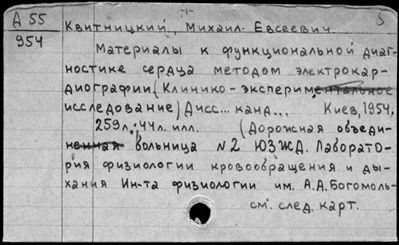 А 55
954
Квитницкий, Михаил Евсеевич.
Материалы к функциональной диаг-
ностике сердца методом электрокар-
диографии (Клинико-экспериментальное
исследование) Дисс... канд... Киев, 1954.
259л.; 44л. илл. (Дорожная объеди-
ненная больница N2 ЮЗЖД. Лаборато-
рия физиологии кровообращения и ды-
хания Ин-та физиологии им. А.А.Богомоль-
см. след. карт.